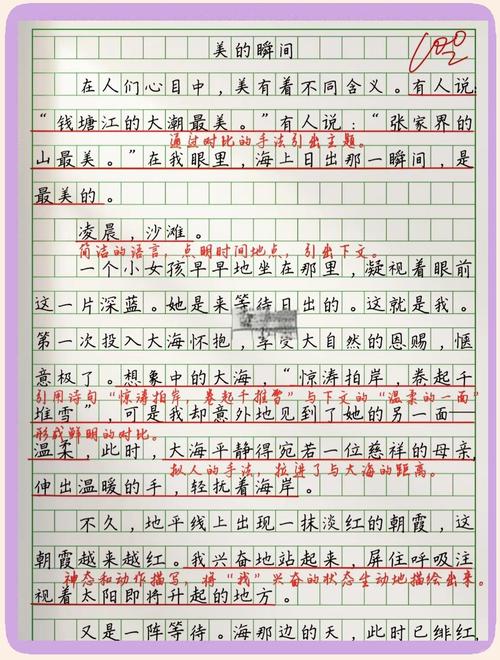 美的瞬间
100
在人们心目中，美有着不同含义。有人说：
“钱塘江的大潮最美。”有人说：“张家界的
通过对比的手法引出主题。
山最美。”在我眼里，海上日出那一瞬间，是
最美的。
凌晨，沙滩。
简洁的语言，点明时间地点，引出下文。
一个小女孩早早地坐在那里，凝视着眼前
这一片深蓝。她是来等待日出的。这就是我。
第一次投入大海怀抱，享受大自然的恩赐，惬
意极了。想象中的大海，“惊涛拍岸，卷起千
引用诗句“惊涛拍岸，卷起千堆雪”与下文的“温柔的一面”
堆雪”，可是我却意外地见到了她的另一面—
形成鲜明的对比。
温柔，此时，大海平静得宛若一位慈祥的母亲，
拟人的手法，拉进了与大海的距离。
伸出温暖的手，轻抚着海岸。
不久，地平线上出现一抹淡红的朝霞，这
朝霞越来越红。我兴奋地站起来，屏住呼吸注
神态和动作描写，将“我”兴奋的状态生动地描绘出来。
视着太阳即将升起的地方。
又是一阵等待。海那边的天，此时已绯红，